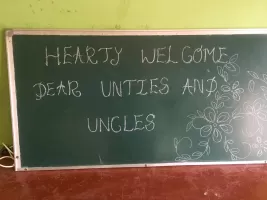 HEARTY WELCOME
DEAR UNTIES AND
UNGLES